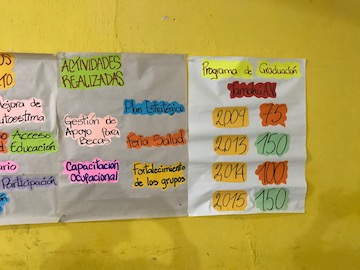 OS
10
Mejora de
Autoestima
Acceso
Educación
ario
Participación
ACTIVIDADES
REALIZADAS
Plan Estratégico
Gestión de
Apoyo Para
Becas
Feria Salud
Capacitación
Ocupacional
Fortalecimiento
de los grupos
Programa de Graduación
2009 75
2013 150
2014 100
2015 150